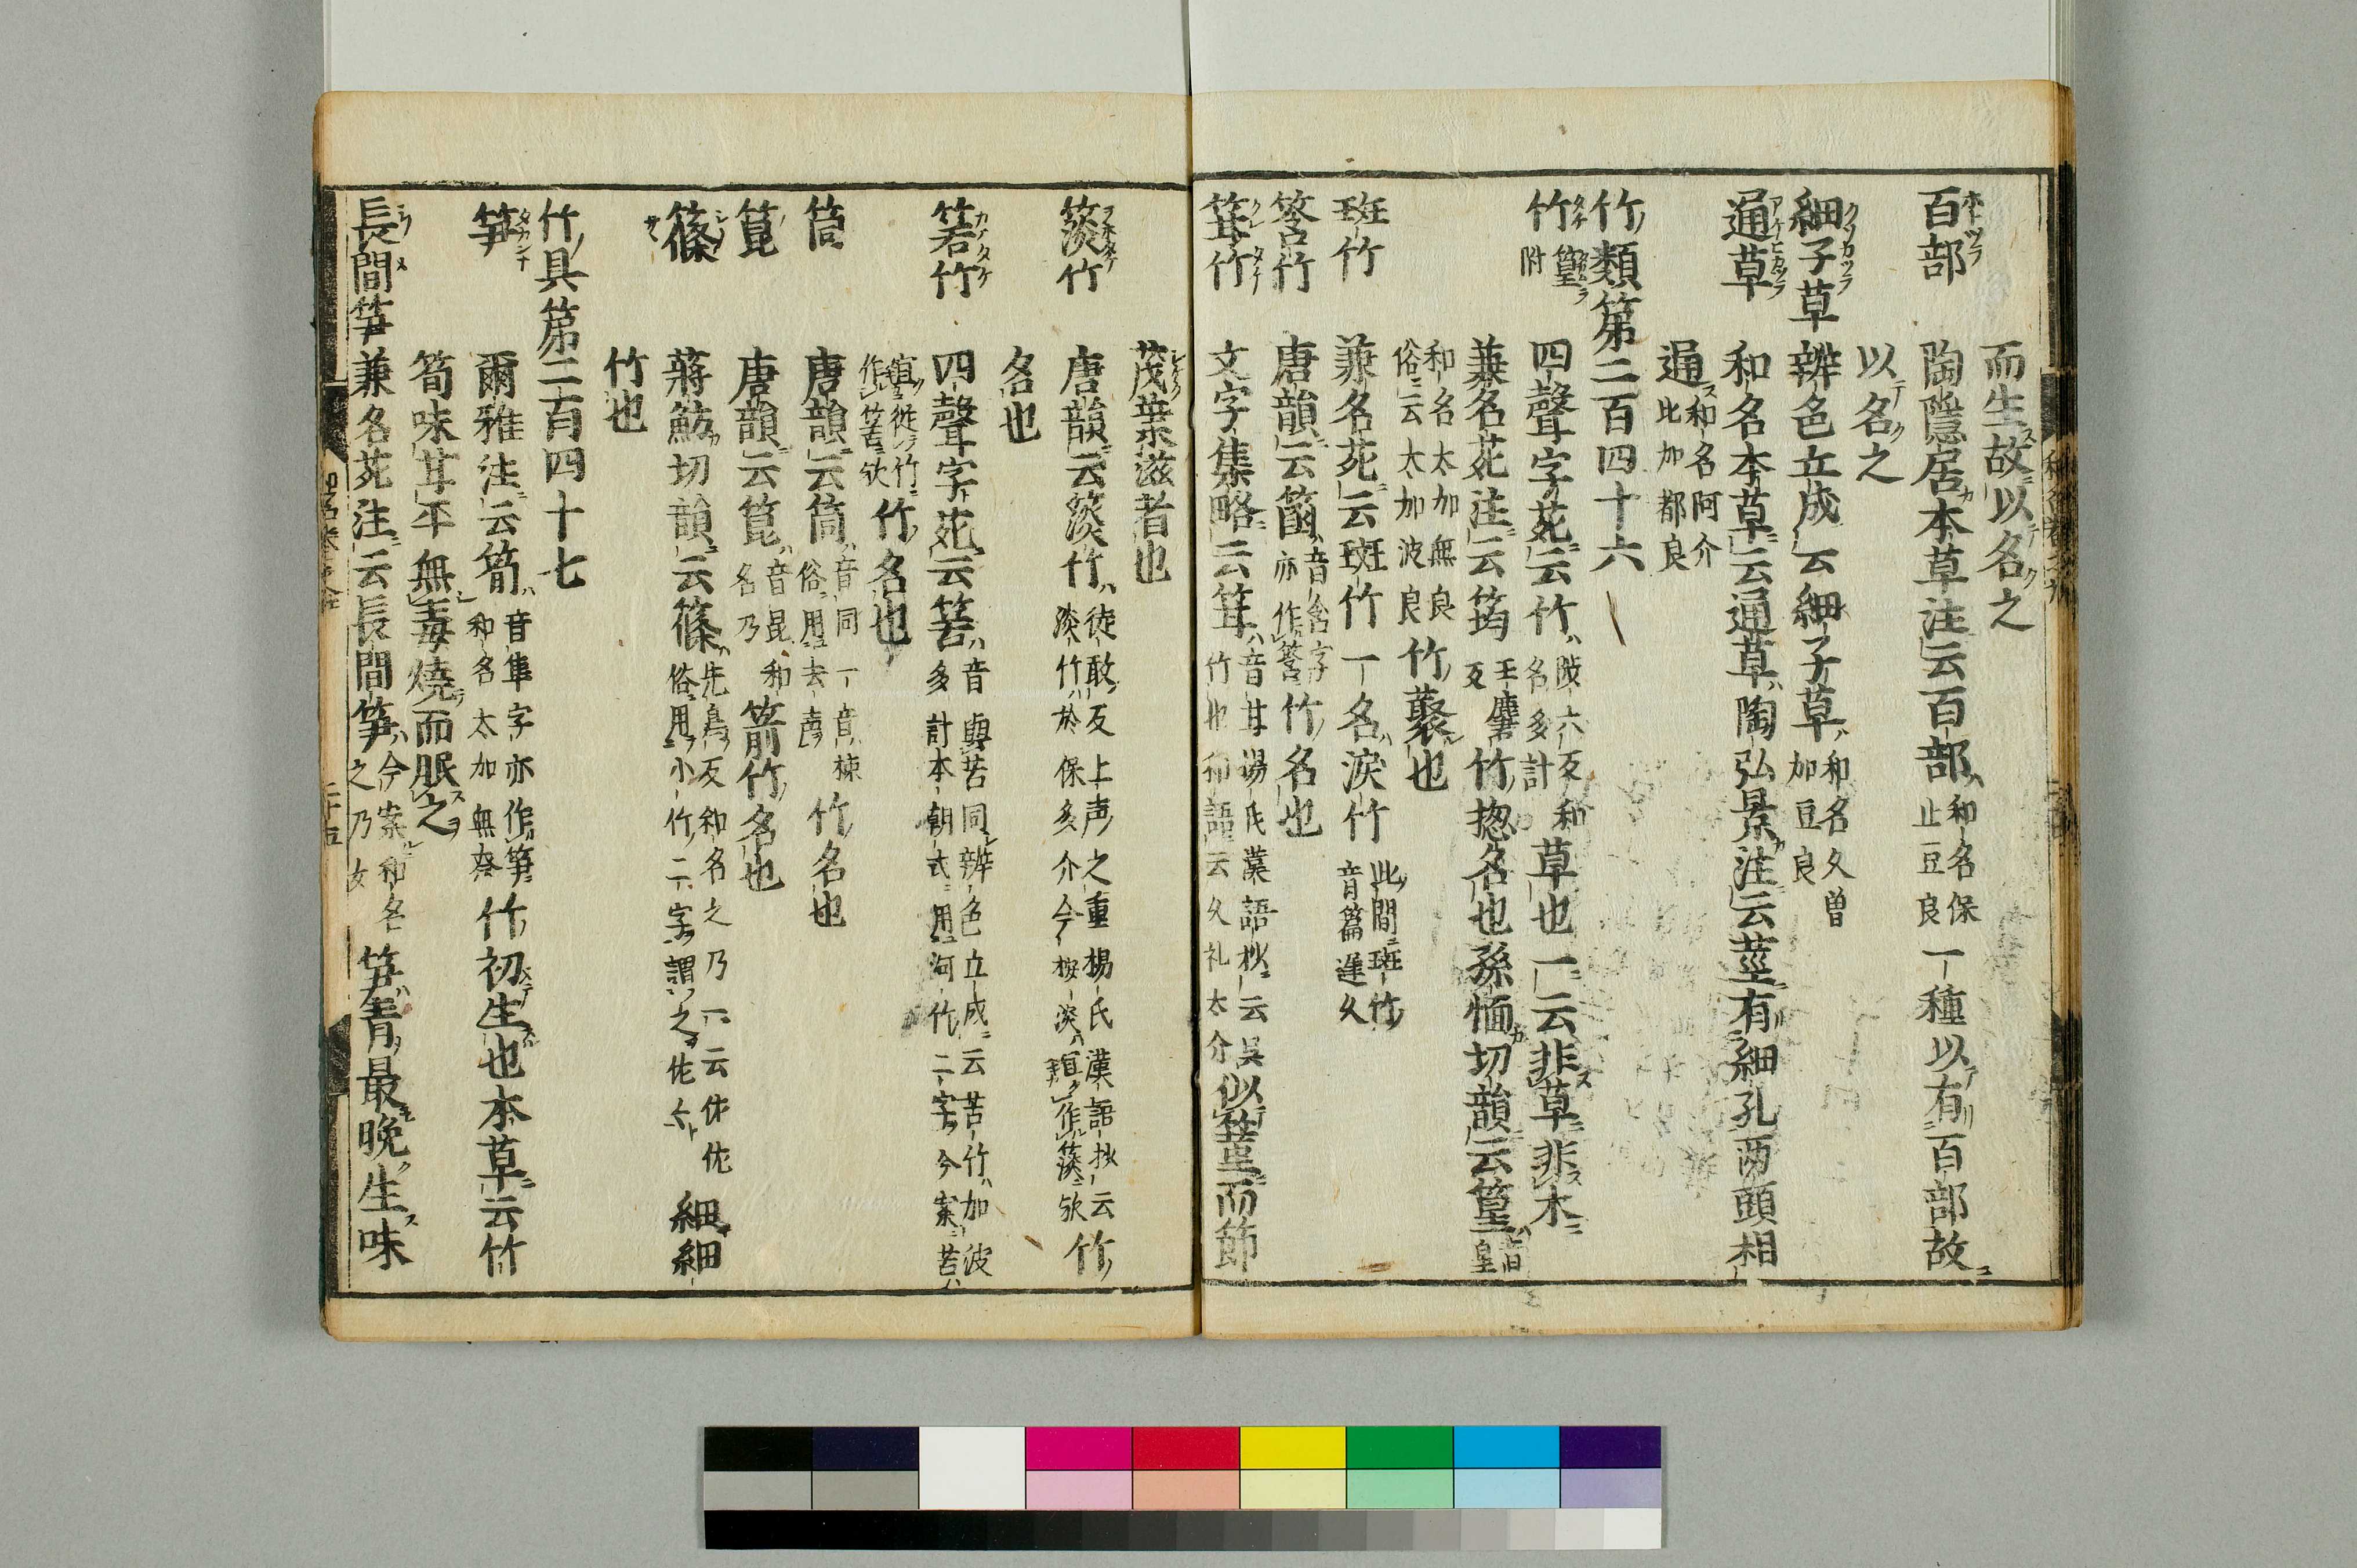 而生故以名之
百部 陶隱居本草注云百部 和名保止豆良 一種以有百部故
以名之
細子草 辨色立成云細子草 和名久曽加豆良
通草 和名本草云通草陶弘景注云莖有細孔両頭相
通 和名阿介比加都良
竹類第二百四十六
竹 篁附 四聲字苑云竹 陟六反和名多計 草也一云非草非木
兼名苑注云筠 王麏反 竹惣名也孫愐切韻云篁 音皇
竹藂也 和名太加無良俗云太加波良
班竹 兼名苑云班竹一名涙竹 此間班竹音篇遅久
䈄竹 唐韻云箘 音含字亦作䈄 竹名也
笽竹 文字集略云笽 音甘湯氏漢語抄云呉竹也和語云久礼太介 似篁而節
茂葉滋者也
䉞竹 唐韻云䉞竹 徒敢反上声之重楊氏漢語抄云淡竹於保多介今按淡宜作䉞歟 竹
名也
箬竹 四聲字苑云箬 音與苦同辨色立成云苦竹加波多計本朝式用河竹二字今案苦
宜従竹作䇢歟 竹名也
筒 唐韻云筒 音同一音棟俗用去声 竹名也
箟 唐韻云箟 音昆和名乃 箭竹名也
篠 蔣魴切韻云篠 先鳥反和名之乃一云佐佐俗用小竹二字謂之佐々 細細
竹也
竹具第二百四十七
笋 爾雅注云筍 音隼字亦作笋和名太加無奈 竹初生也本草云竹
筍味甘平無毒燒而服之
長間笋 兼名苑注云長間笋 今案和名之乃女 笋青最晩生味